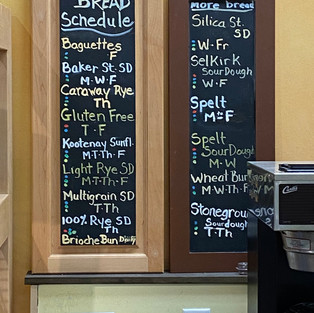 BREAD
Schedule
Baguettes
F
Baker St. SD
M·W·F
Caraway Rye
Th
Gluten Free
T·F
Kootenay Sunfl.
M·T·Th·F
Light Rye SD
M·T·Th·F
Multigrain SD
T·Th
100% Rye SD
Th
Brioche Bun Daily
more bread
Silica St.
SD
W·Fr
Selkirk
SourDough
W·F
Spelt
Spelt
SourDough
M·W
Wheat Bun
M·W·Th·F
Stoneground
Sourdough
T·Th
Curtis